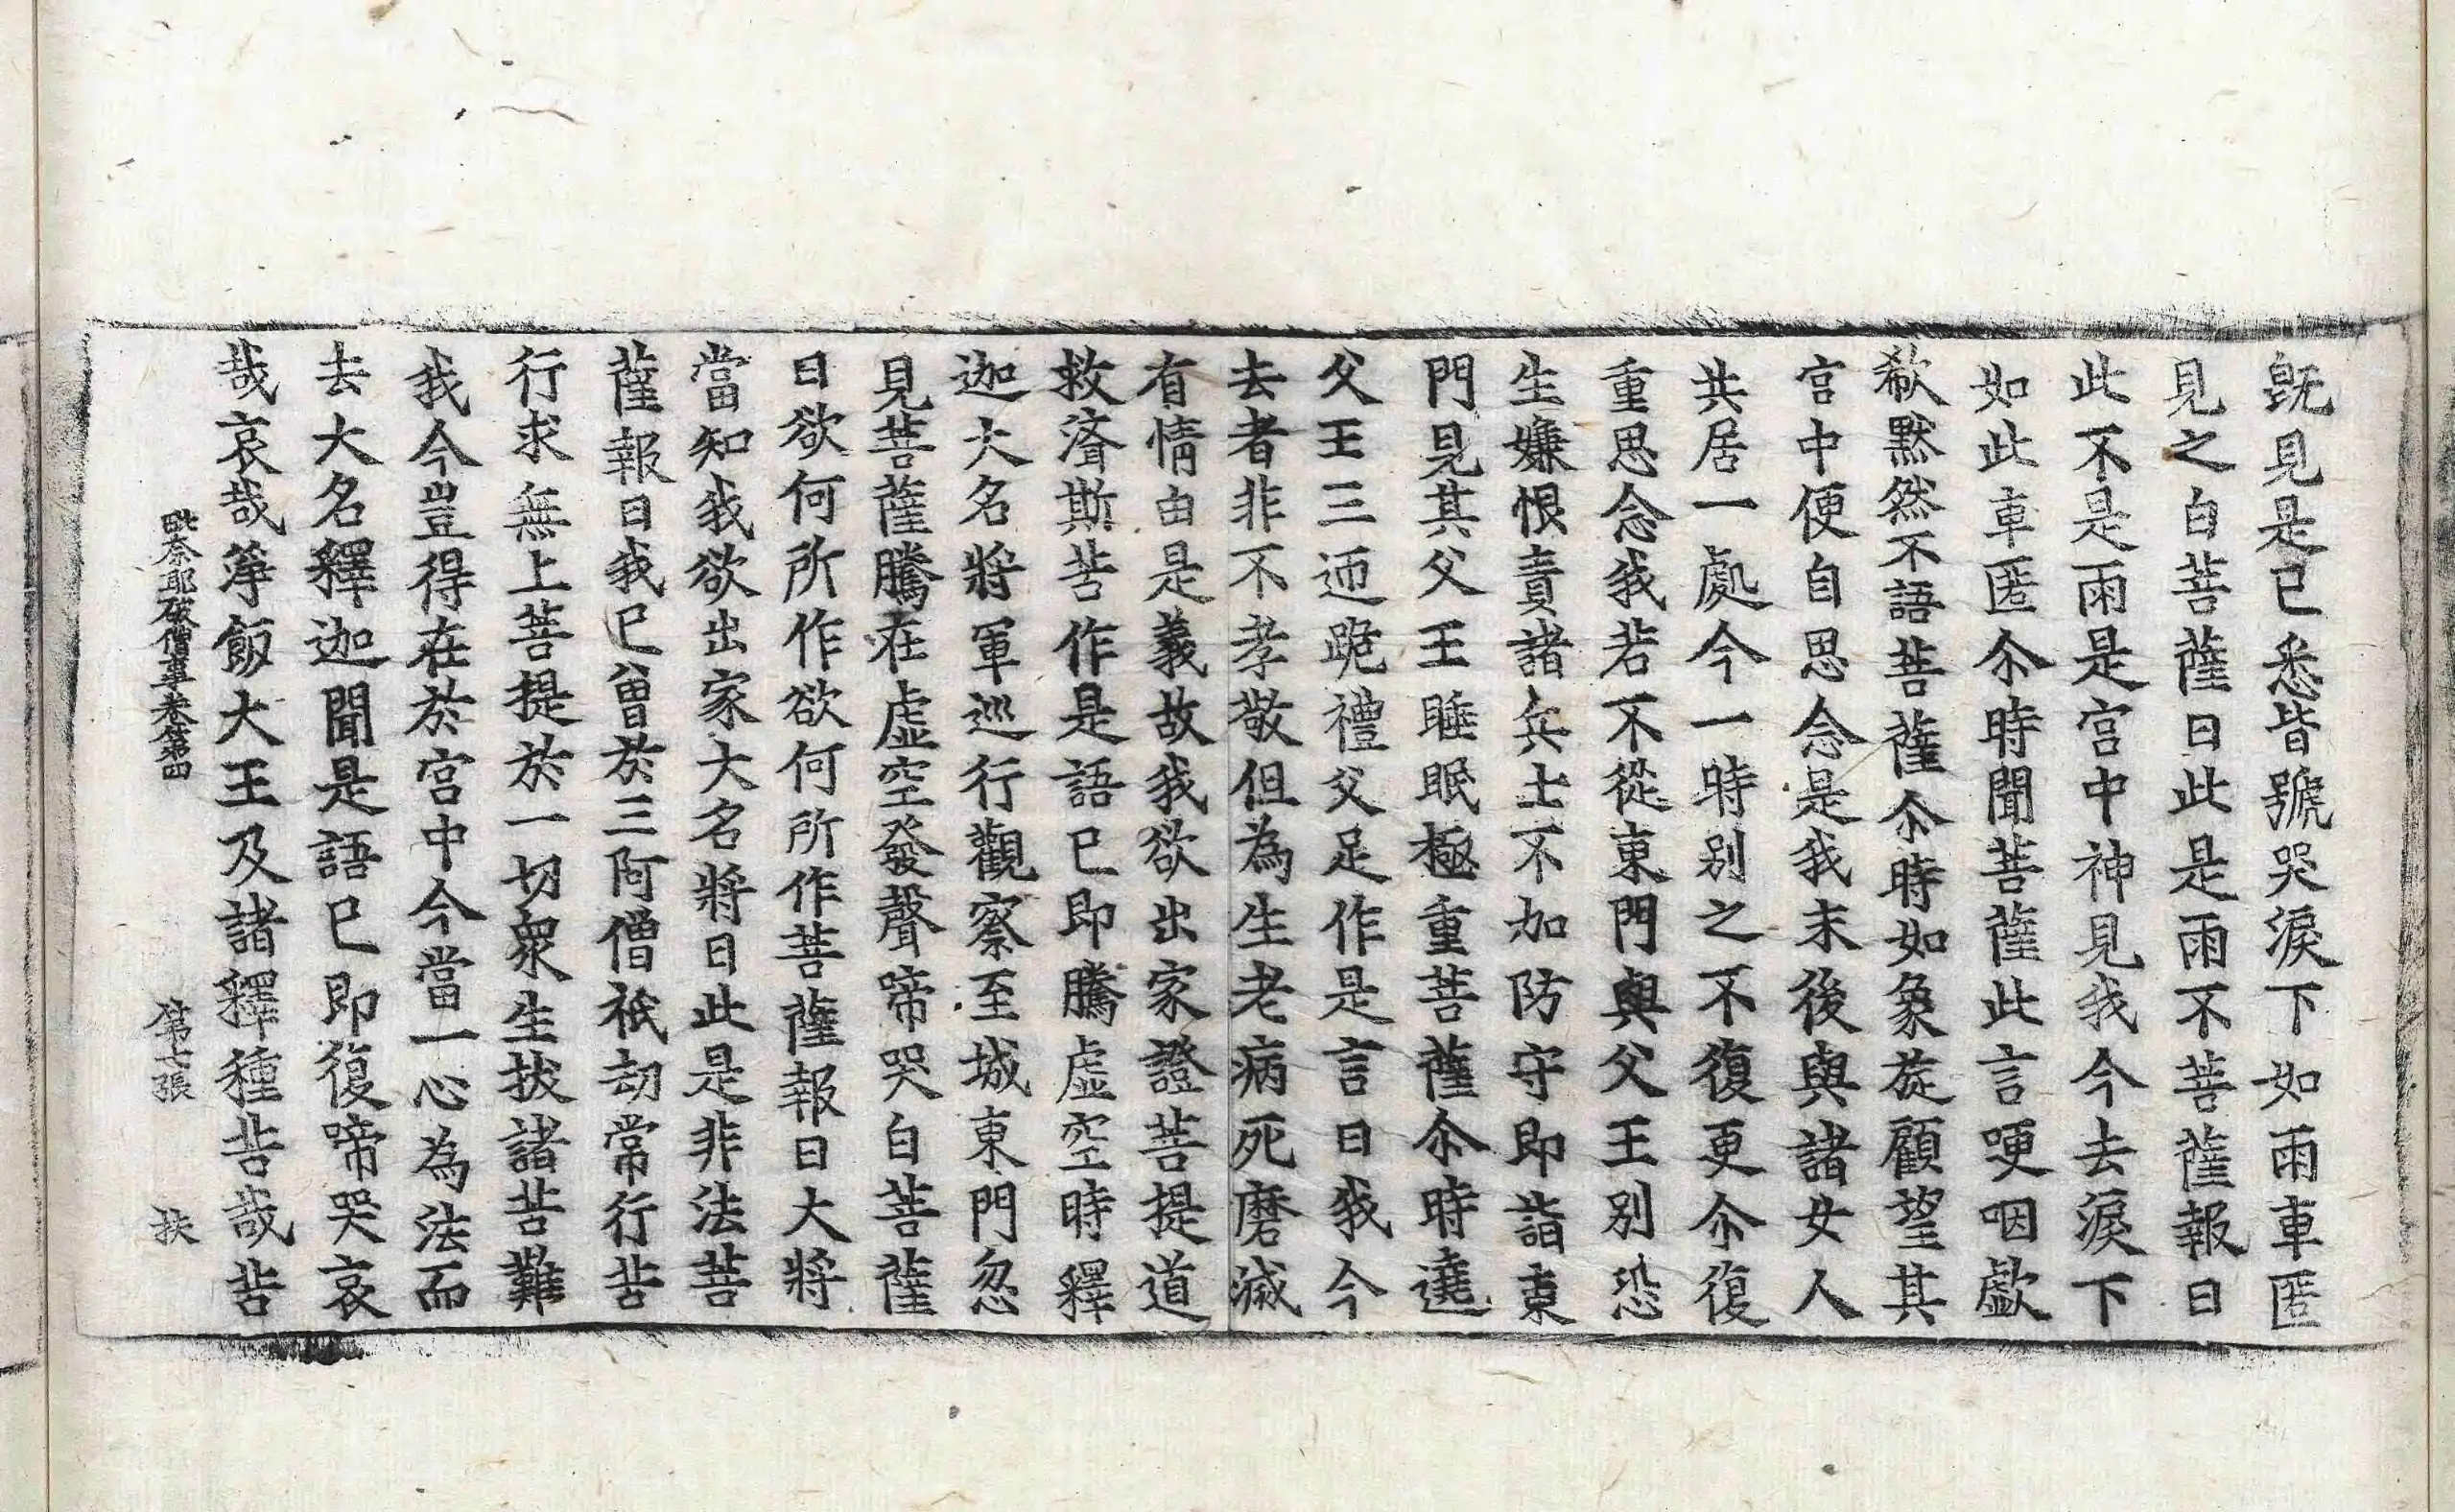 旣見是已悉皆號哭淚下如雨車匿
見之白菩薩曰此是雨不菩薩報曰
此不是雨是宮中神見我今去淚下
如此車匿尒時聞菩薩此言哽咽歔
欷默然不語菩薩尒時如象旋顧望其
宮中便自思念是我末後與諸女人
共居一處今一時別之不復更尒復
重思念我若不從東門與父王別恐
生嫌恨責諸兵士不加防守即詣東
門見其父王睡眠極重菩薩尒時遶
父王三迊跪禮父足作是言曰我今
去者非不孝敬但為生老病死磨滅
有情由是義故我欲出家證菩提道
救濟斯苦作是語已即騰虛空時釋
迦大名將軍巡行觀察至城東門忽
見菩薩騰在虛空發聲啼哭白菩薩
曰欲何所作欲何所作菩薩報曰大將
當知我欲出家大名將曰此是非法菩
薩報曰我已曾於三阿僧祇劫常行苦
行求無上菩提於一切衆生拔諸苦難
我今豈得在於宮中今當一心為法而
去大名釋迦聞是語已即復啼哭哀
哉哀哉筭飯大王及諸釋種苦哉苦
毗奈耶破僧事卷第四 第七張 扶